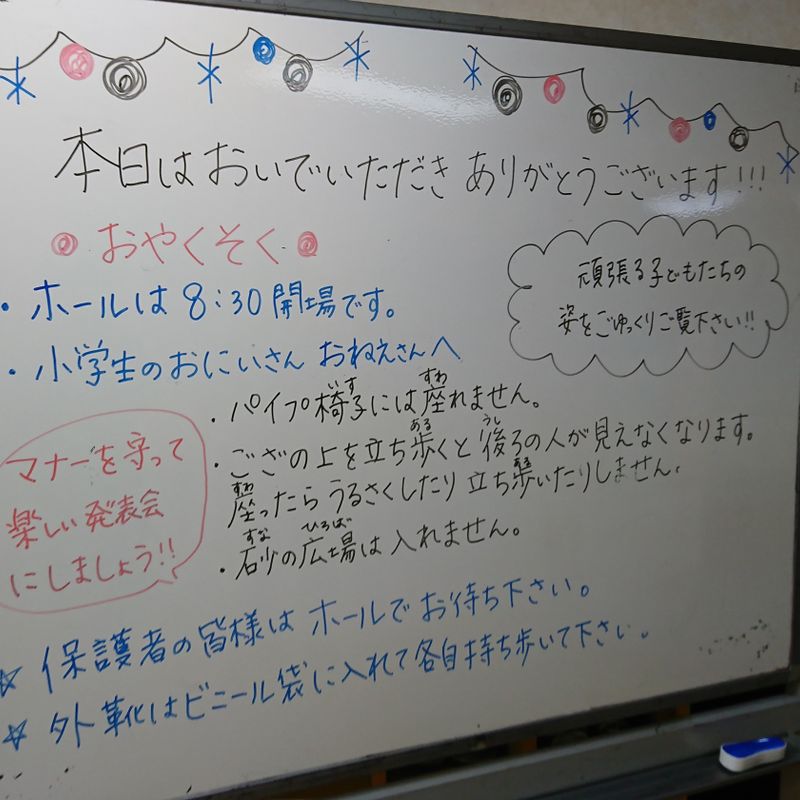 本日はおいでいただき ありがとうございます!!!
おやくそく
頑張る子どもたちの
姿をごゆっくりご覧下さい!!
・ホールは8:30開場です。
・小学生のおにいさん おねえさんへ
・パイプ椅子には座れません。
いす すわ
・ござの上を立ち歩くと後ろの人が見えなくなります。
ある うし
座ったらうるさくしたり立ち歩いたりしません。
すわ ある
・砂の広場は入れません。
すな ひろば
マナーを守って
楽しい発表会
にしましょう!!
☆ 保護者の皆様はホールでお待ち下さい。
☆ 外靴はビニール袋に入れて各自持ち歩いて下さい。